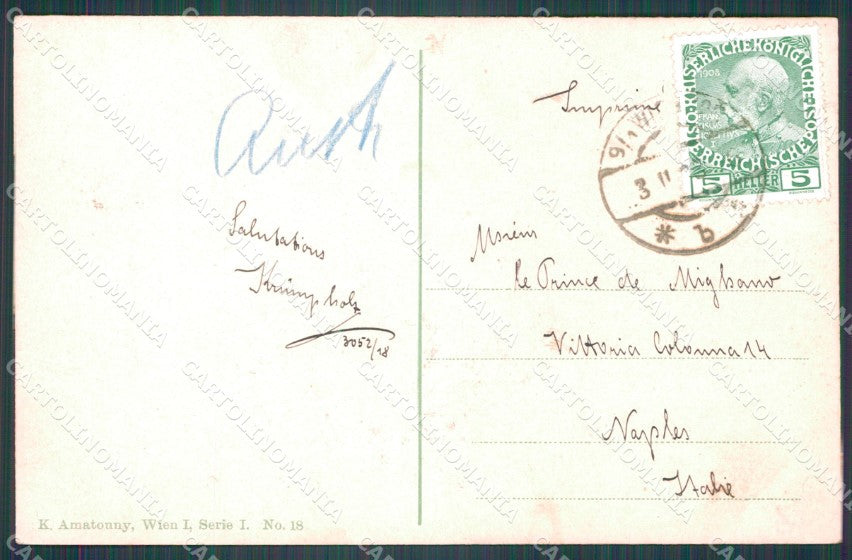 Imprimé
1908
K.K. ÖSTERREICHISCHE
5 HELLER 5
9/1 WIEN
3 II
* b
Salutations
Krümpholz
3052/18
Msieur
le Prince de Migliano
Vittoria Colonna 14
Naples
Italie
K. Amatouny, Wien I, Serie I. No. 18
CARTOLINOMANIA